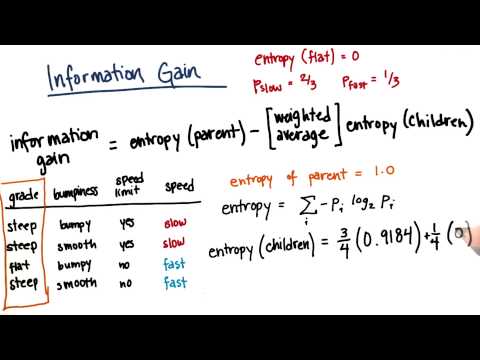 Information Gain
entropy (flat) = 0
Pslow = 2/3 Pfast = 1/3
information gain = entropy (parent) - [weighted average] entropy (children)
entropy of parent = 1.0
entropy = ∑i -Pi log2 Pi
entropy (children) = 3/4 (0.9184) + 1/4 (0)
grade bumpiness speed limit speed
steep bumpy yes slow
steep smooth yes slow
flat bumpy no fast
steep smooth no fast